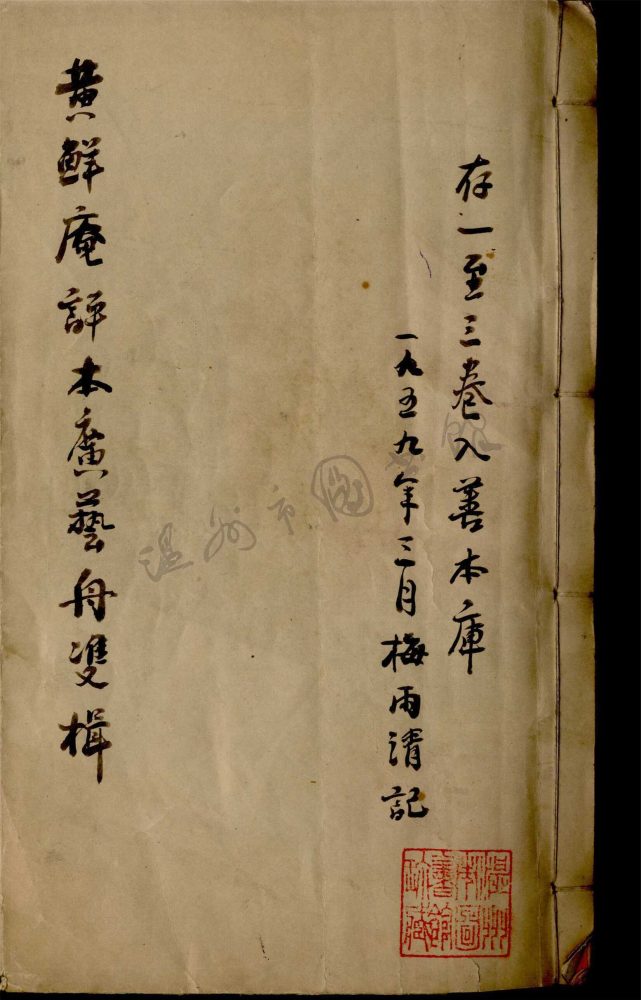 存一至三卷入善本庫
一九五九年三月梅雨清記
黄鮮庵評本廣藝舟雙楫
温州
市圖
書館
藏
温州市圖